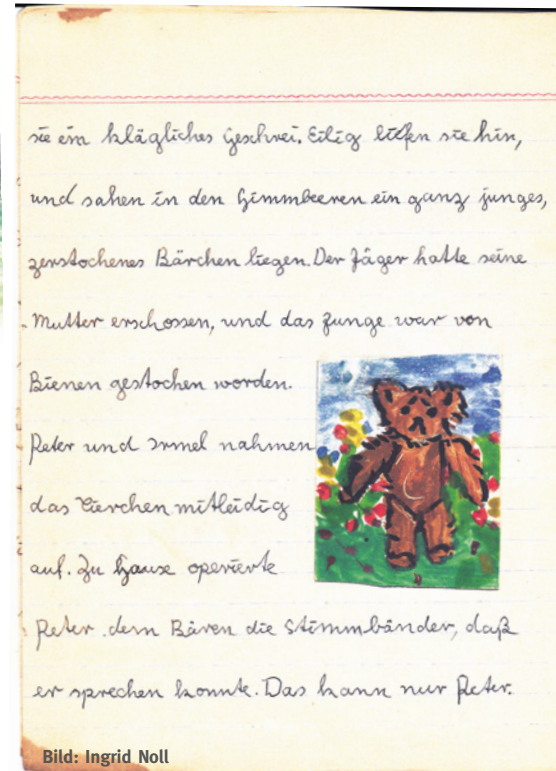 sie ein klägliches Geschrei. Eilig liefen sie hin,
und sahen in den Himmbeeren ein ganz junges,
zerstochenes Bärchen liegen. Der Jäger hatte seine
Mutter erschossen, und das Junge war von
Bienen gestochen worden.
Peter und Irmel nahmen
das Tierchen mitleidig
auf. Zu Hause operierte
Peter dem Bären die Stimmbänder, daß
er sprechen konnte. Das kann nur Peter.
Bild: Ingrid Noll